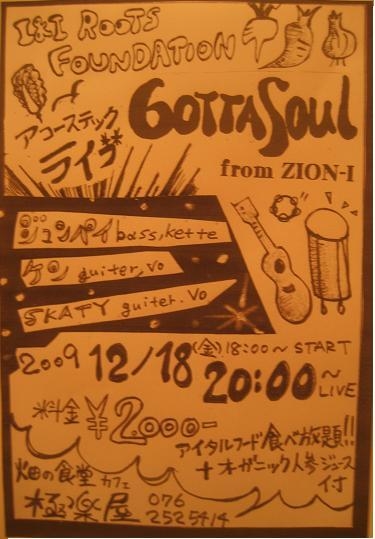 I&I ROOTS
FOUNDATION
アコースティック
ライブ
GOTTASOUL
from ZION-I
ジュンペイ bass, kette
ケン guiter, vo
SKATY guiter. Vo
2009 12/18 (金) 18:00～ START
20:00～ LIVE
料金 ¥2000-
アイタルフード食べ放題!!
+オーガニック人参ジュース
イ寸
畑の食堂 カフェ
極楽屋 076
2525414